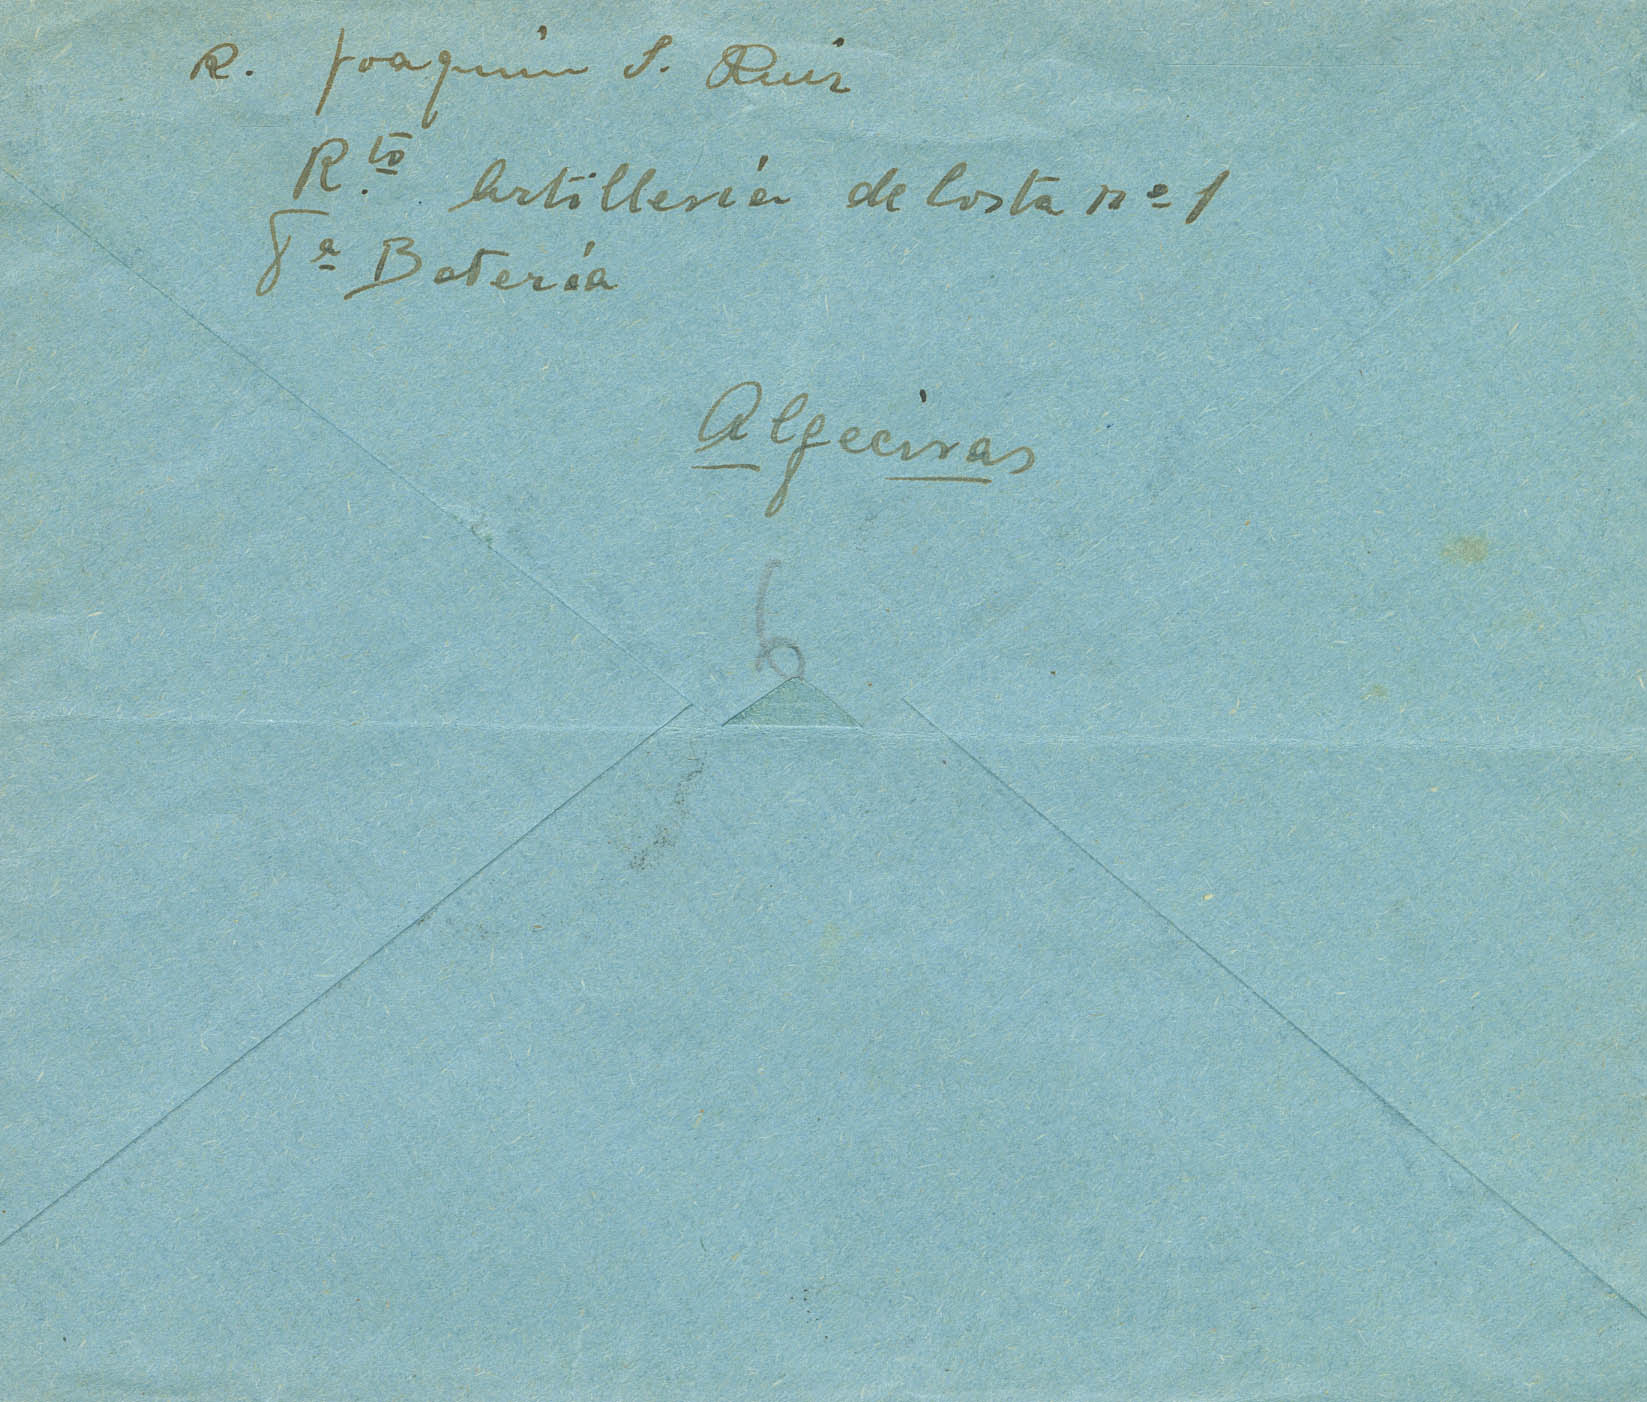 R. Joaquin S. Ruiz
R.to Artillería de Costa nº 1
8ª Batería
Algeciras
6